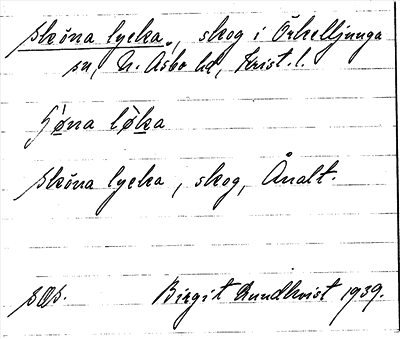 sköna lycka, skog i Örkelljunga
sn, N. Åsbo hd, Krist. l.
sköna lycka, skog, Ånalt.
Birgit Lundkvist 1939.